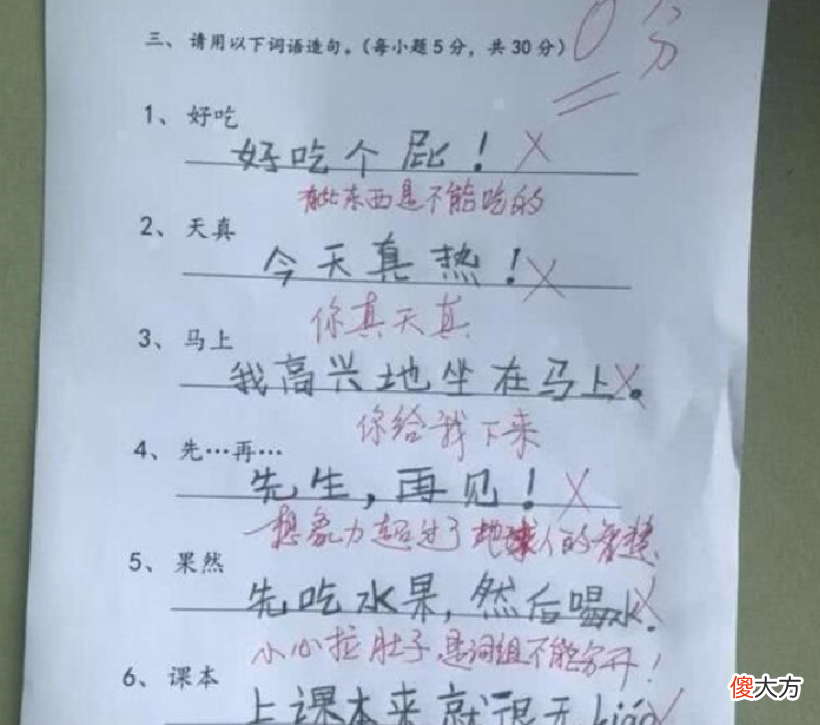 三、请用以下词语造句。(每小题5分，共30分)
0分
1、好吃
好吃个屁！
有些东西是不能吃的
2、天真
今天真热！
你真天真
3、马上
我高兴地坐在马上。
你给我下来
4、先…再…
先生，再见！
想象力超过了地球人的智慧
5、果然
先吃水果，然后喝水。
小心拉肚子，是词组不能分开！
6、课本
上课本来就很无liáo
傻大方